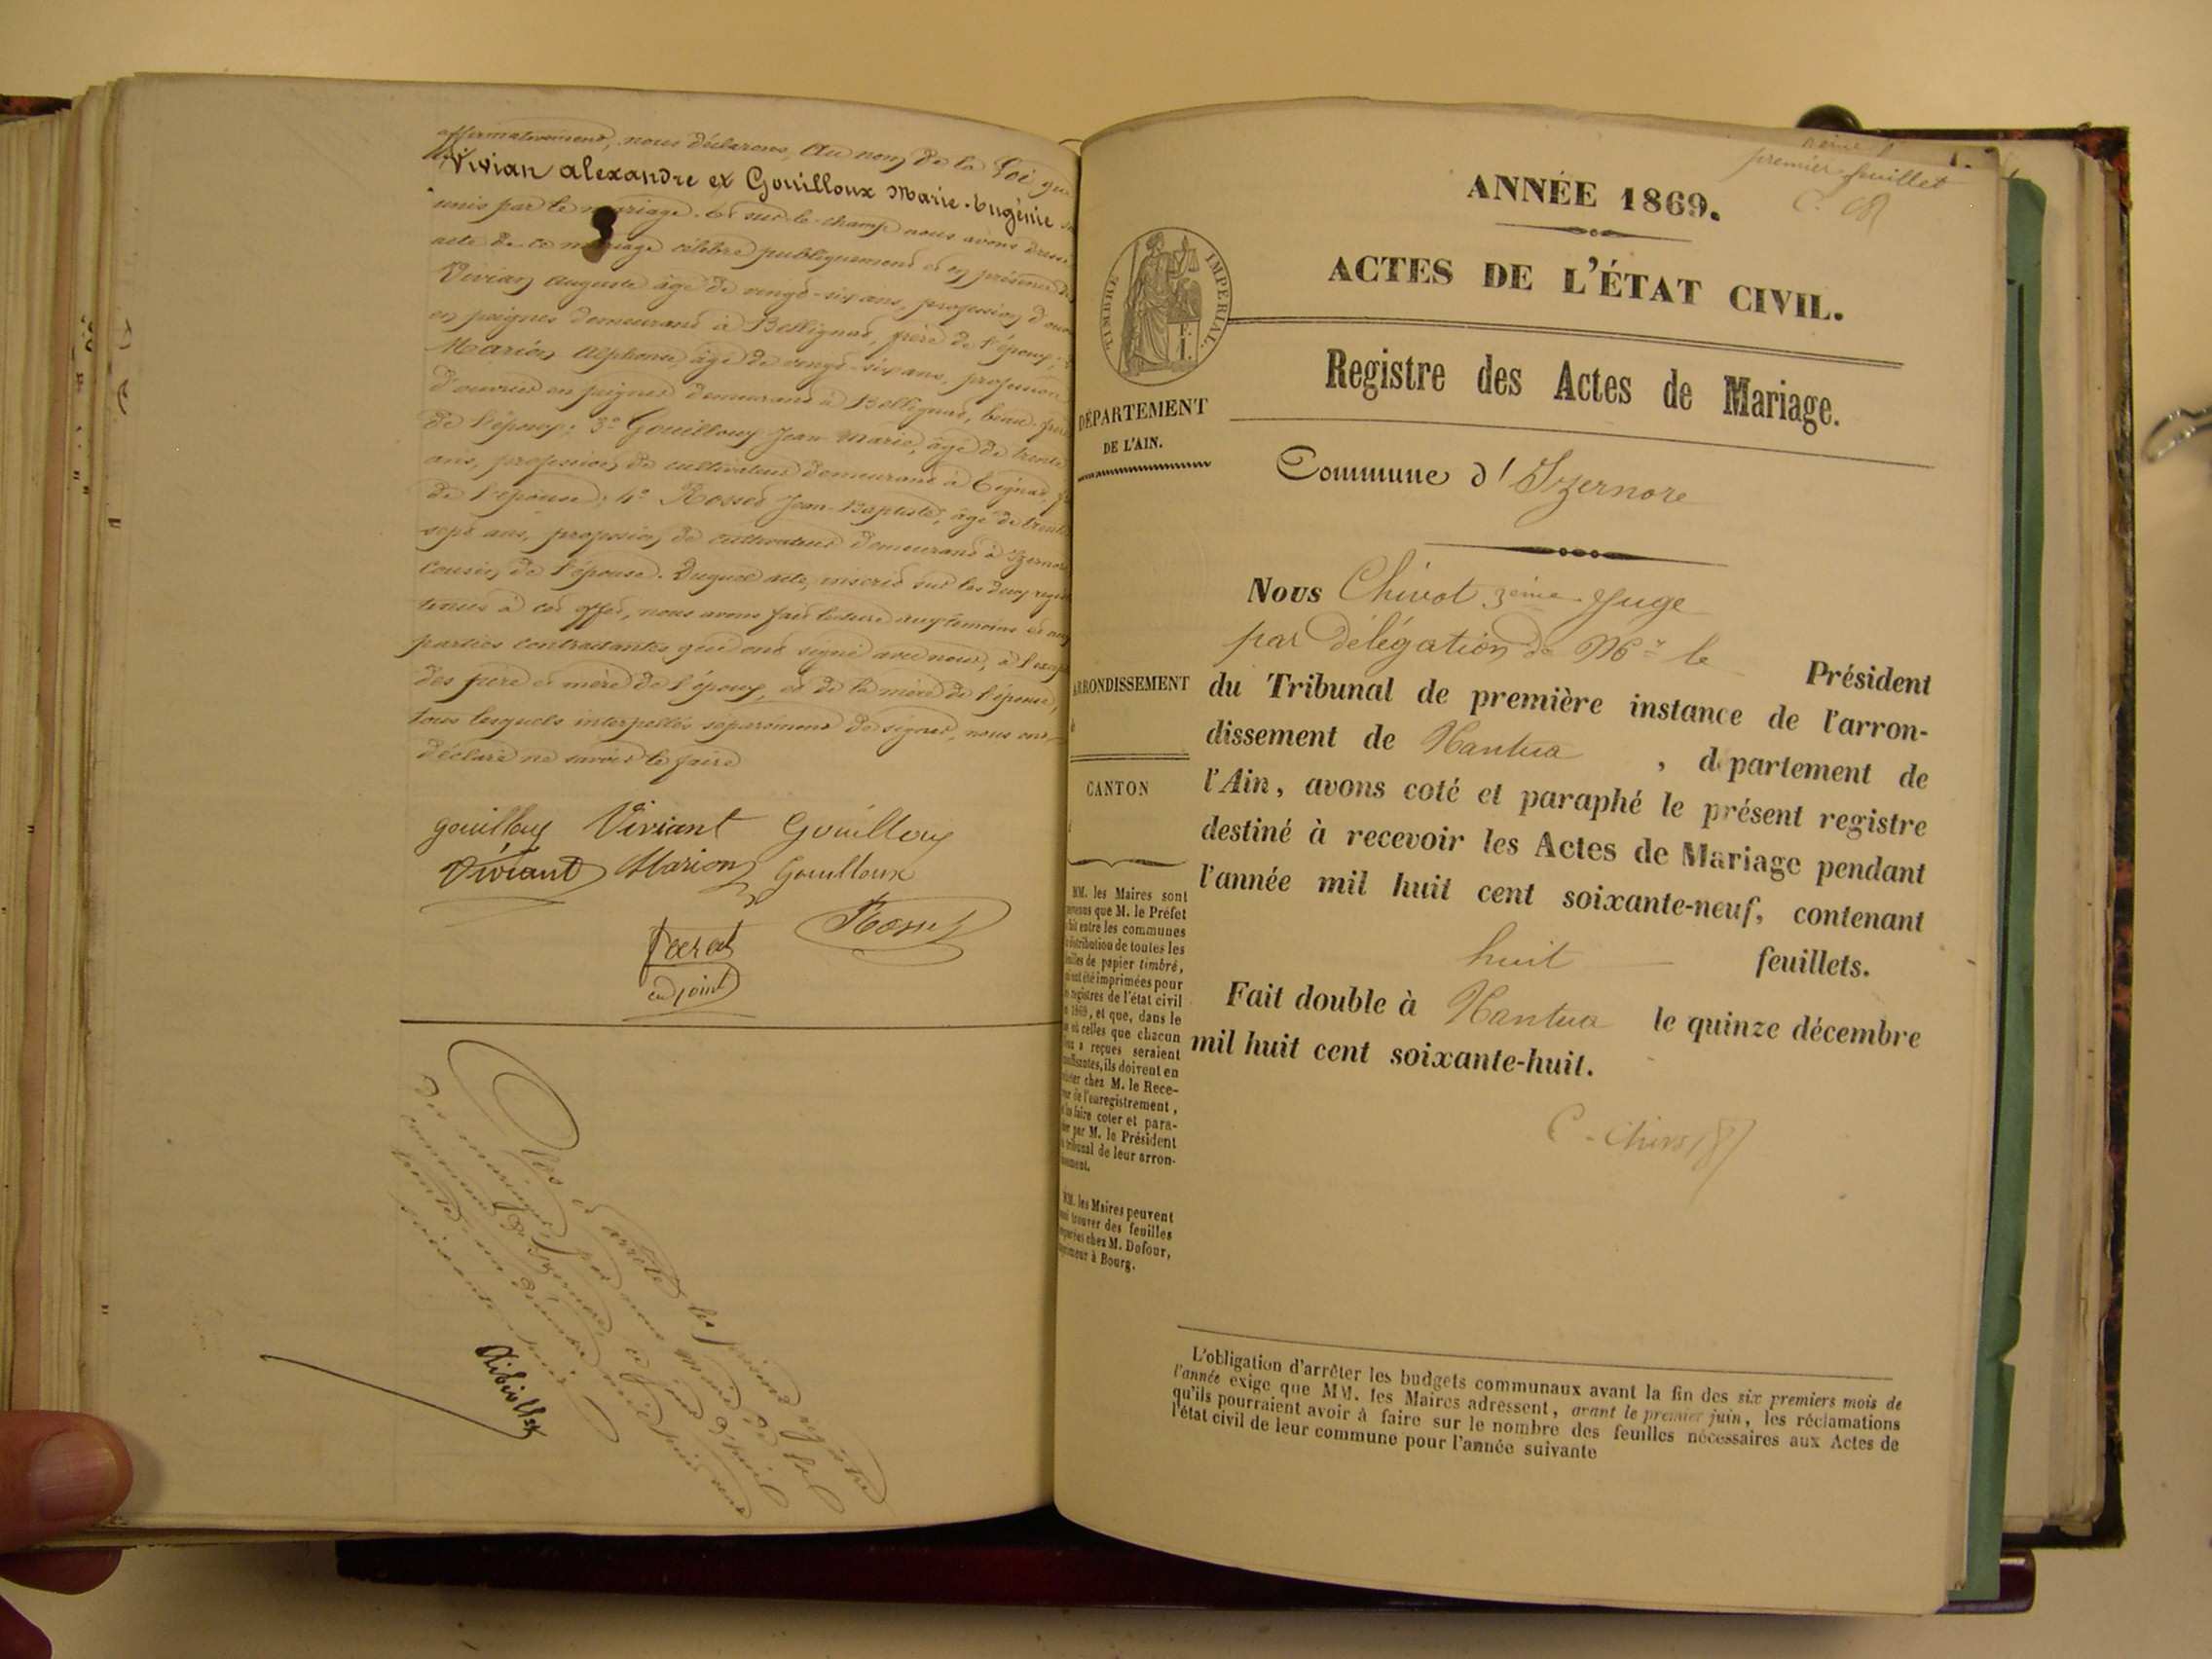 affirmativement, nous déclarons, au nom de la Loi que
Vivian alexandre et Gouilloux Marie-Eugénie
unis par le mariage. Et sur-le-champ nous avons dressé
acte de ce mariage célébré publiquement et en présence de
Vivian Auguste âgé de vingt-six ans, profession d'
en peignes demeurant à Bellignat, frère de l'époux;
Marion Alphonse, âgé de vingt-six ans, profession
d'ouvrier en peignes demeurant à Bellignat, beau-frère
de l'époux; 3° Gouilloux Jean-Marie, âgé de trente
ans, profession de cultivateur demeurant à
de l'épouse; 4° Rosset Jean-Baptiste, âgé de trente
sept ans, profession de cultivateur demeurant à Izernore
cousin de l'épouse. Duquel acte, inscrit sur les deux
tenus à cet effet, nous avons fait lecture aux témoins et aux
parties contractantes qui ont signé avec nous, à l'
des père et mère de l'époux, et de la mère de l'épouse,
tous lesquels interpellés séparément de signer, nous ont
déclaré ne savoir le faire
gouilloux Viviant Gouilloux
Viviant Marion Gouilloux
adjoint
Clos et arrêté le présent registre
de mariages par nous Maire de la
commune d'Izernore, ce jour d'hui
trente un décembre mil huit cent
soixante huit
premier feuillet
ANNÉE 1869.
ACTES DE L'ÉTAT CIVIL.
TIMBRE IMPÉRIAL.
Registre des Actes de Mariage.
DÉPARTEMENT
DE L'AIN.
Commune d'Izernore
Nous Chivot 3eme Juge
par délégation de Mr le Président
ARRONDISSEMENT
du Tribunal de première instance de l'arron-
dissement de Nantua, département de
l'Ain, avons coté et paraphé le présent registre
destiné à recevoir les Actes de Mariage pendant
l'année mil huit cent soixante-neuf, contenant
huit feuillets.
Fait double à Nantua le quinze décembre
mil huit cent soixante-huit.
CANTON
MM. les Maires sont
que M. le Préfet
entre les communes
distribution de toutes les
de papier timbré,
ont été imprimées pour
registres de l'état civil
1869, et que, dans le
où celles que chacun
a reçues seraient
ils doivent en
chez M. le Rece-
de l'enregistrement,
faire coter et para-
par M. le Président
tribunal de leur arron-
MM. les Maires peuvent
trouver des feuilles
chez M. Dufour,
à Bourg.
L'obligation d'arrêter les budgets communaux avant la fin des six premiers mois de
l'année exige que MM. les Maires adressent, avant le premier juin, les réclamations
qu'ils pourraient avoir à faire sur le nombre des feuilles nécessaires aux Actes de
l'état civil de leur commune pour l'année suivante